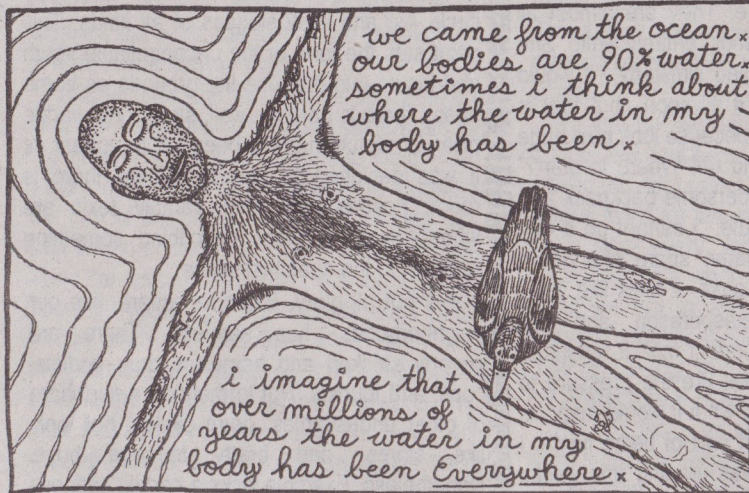 we came from the ocean×
our bodies are 90% water×
sometimes i think about
where the water in my
body has been×
i imagine that
over millions of
years the water in my
body has been Everywhere×